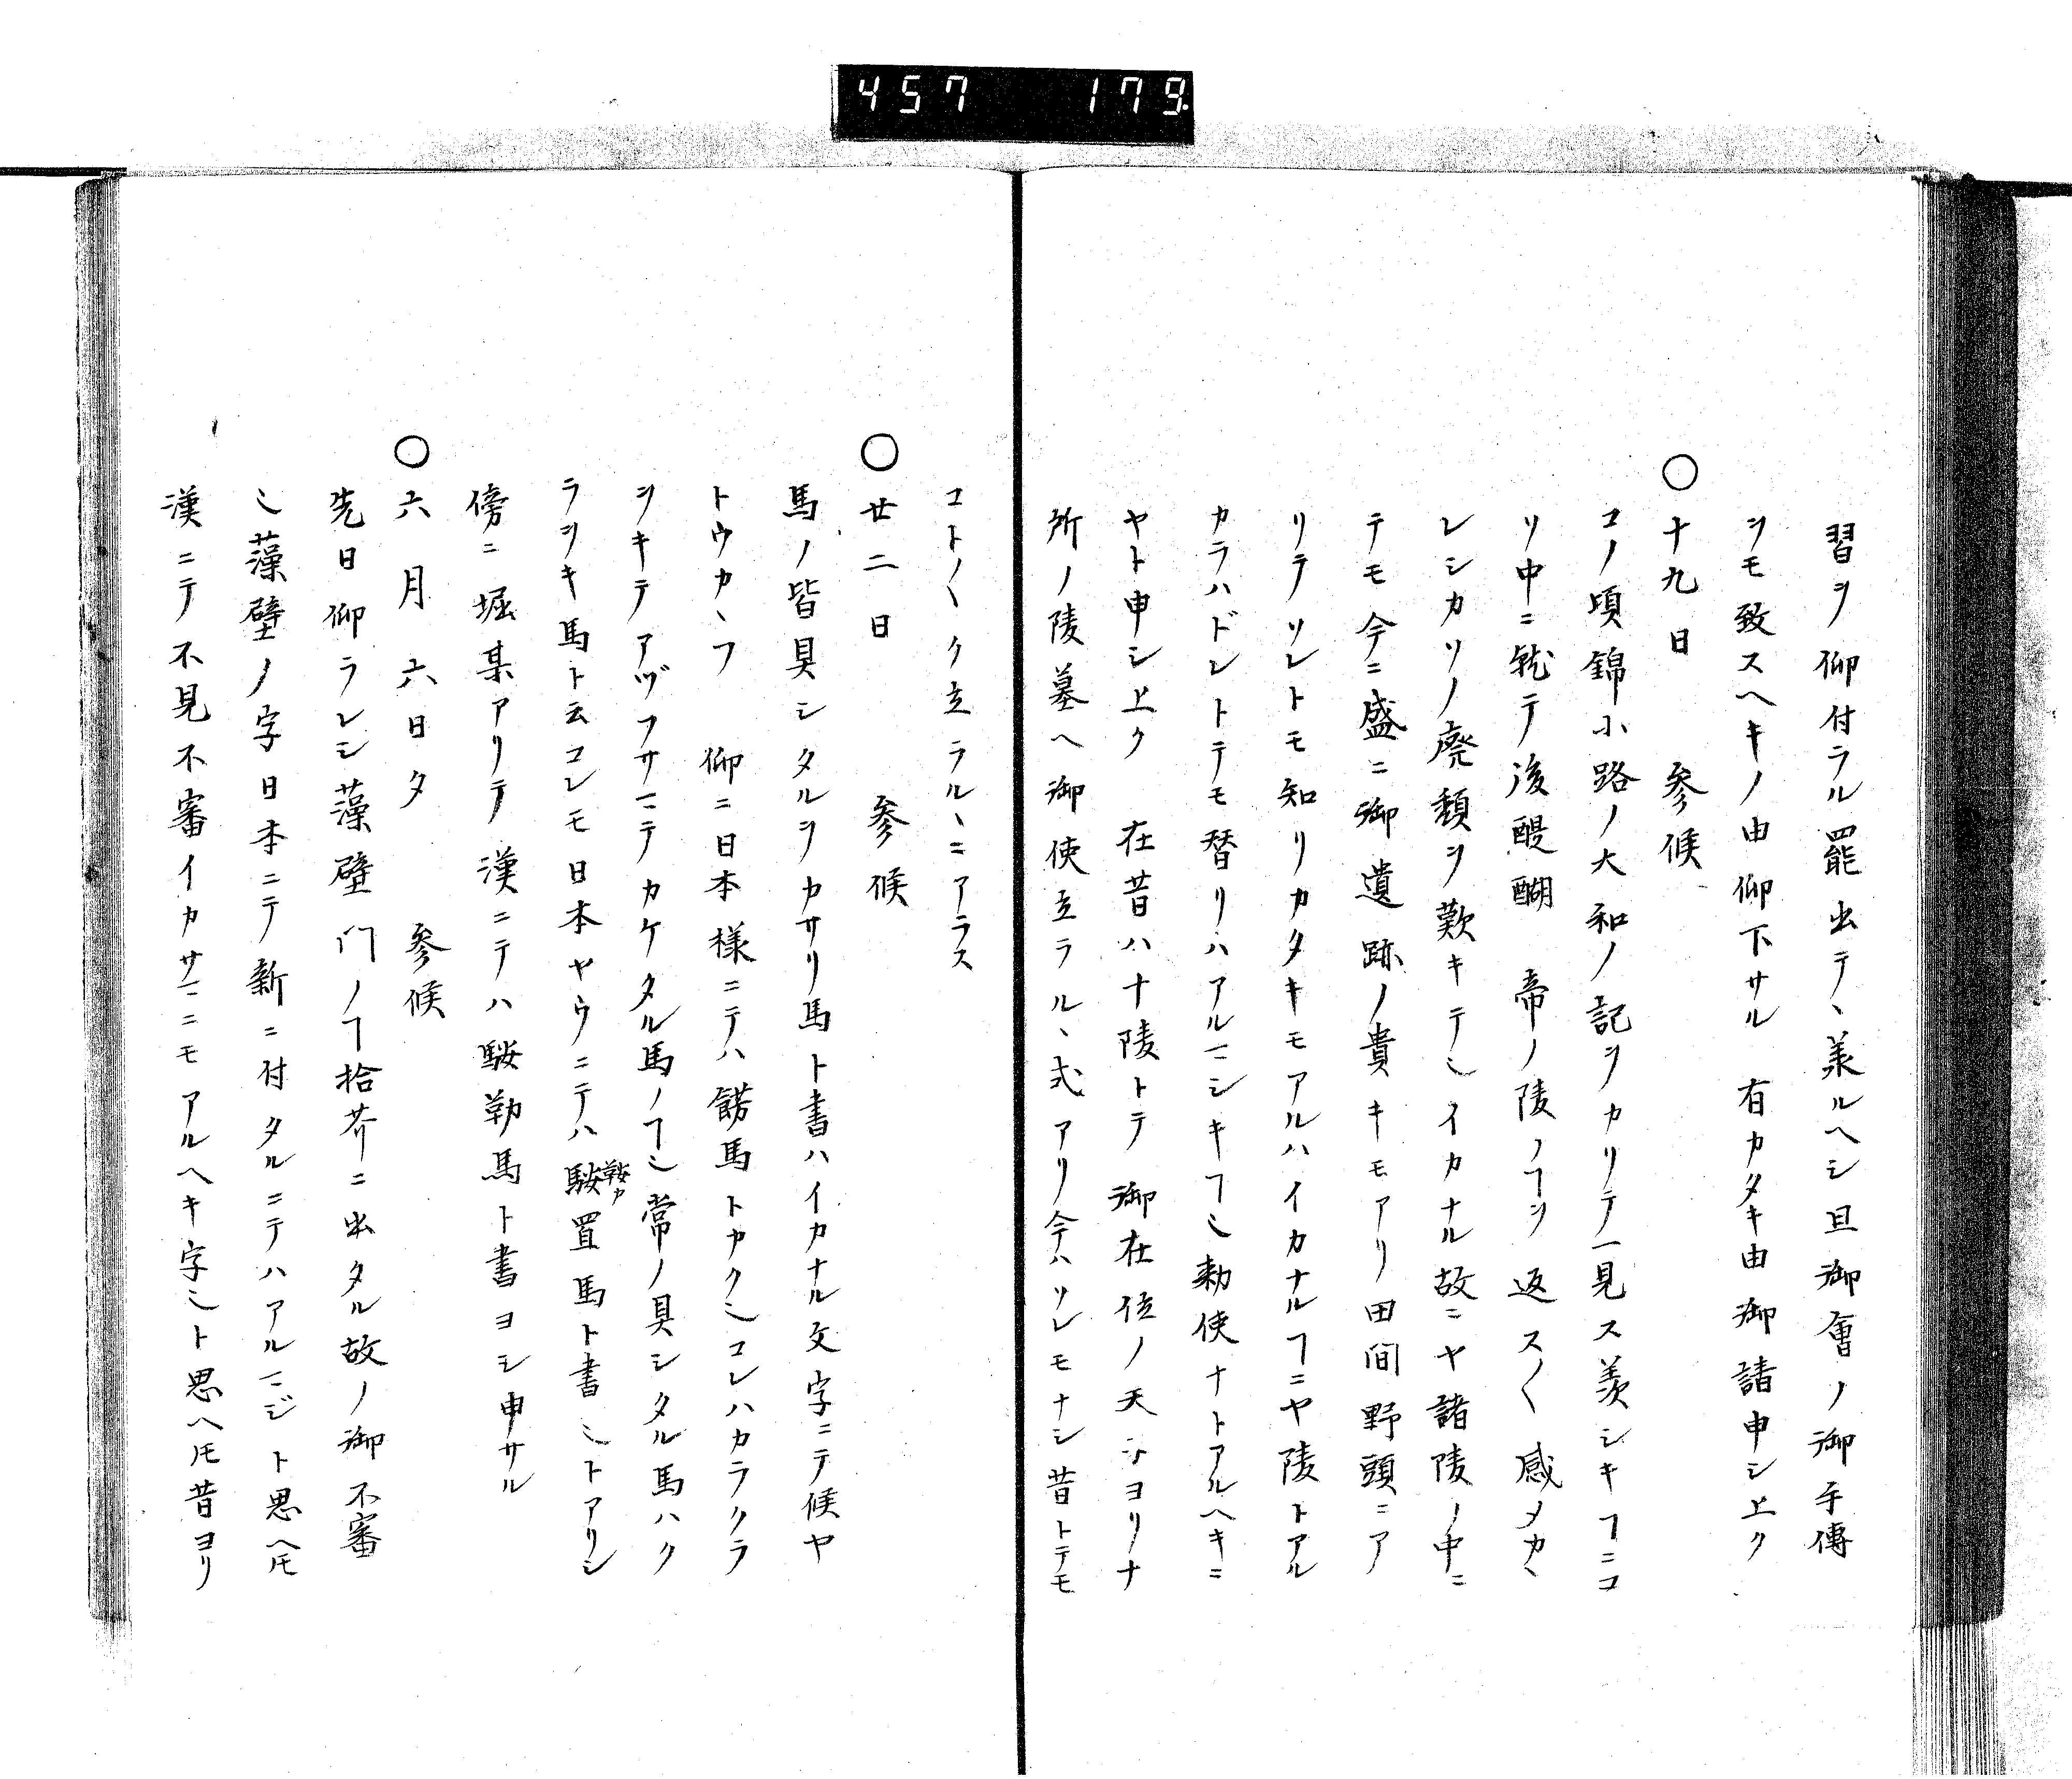 457 179
習ヲ仰付ラル罷出テヽ義ルヘシ且御會ノ御手傳
ヲモ致スヘキノ由仰下サル 有カタキ由御請申シ上ク
〇十九日 參候
コノ頃錦小路ノ大和ノ記ヲカリテ一見ス羨シキヿニコ
ソ中ニ就テ後醍醐 帝ノ陵ノヿヲ返ス〱感メカヽ
レシカソノ廃頽ヲ歎キテ也イカナル故ニヤ諸陵ノ中ニ
テモ今ニ盛ニ御遺跡ノ貴キモアリ田間野頭ニア
リテソレトモ知リカタキモアルハイカナルヿニヤ陵トアル
カラハドレトテモ替リハアルマシキヿ也勅使ナトアルヘキニ
ヤト申シ上ク 在昔ハ十陵トテ御在位ノ天子ヨリナ
所ノ陵墓ヘ御使立ラルヽ式アリ今ハソレモナシ昔トテモ
コト〱ク立ラルヽニアラス
〇廿二日 參候
馬ノ皆具シタルヲカサリ馬ト書ハイカナル文字ニテ候ヤ
トウカヽフ 仰ニ日本様ニテハ餝馬トカク也コレハカラクラ
ヲキテアヅフサマテカケタル馬ノヿ也常ノ具シタル馬ハク
ラヲキ馬ト云コレモ日本ヤウニテハ䮗置馬ト書也トアリシ
鞍カ
傍ニ堀某アリテ漢ニテハ䮗勒馬ト書ヨシ申サル
〇六月六日夕 參候
先日仰ラレシ藻壁門ノヿ拾芥ニ出タル故ノ御不審
也藻壁ノ字日本ニテ新ニ付タルニテハアルマジト思ヘ𪜈
漢ニテ不見不審イカサマニモアルヘキ字也ト思ヘ𪜈昔ヨリ